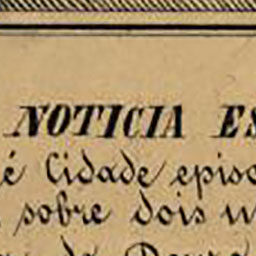 NOTICIA ES
é Cidade episc
sobre dois u